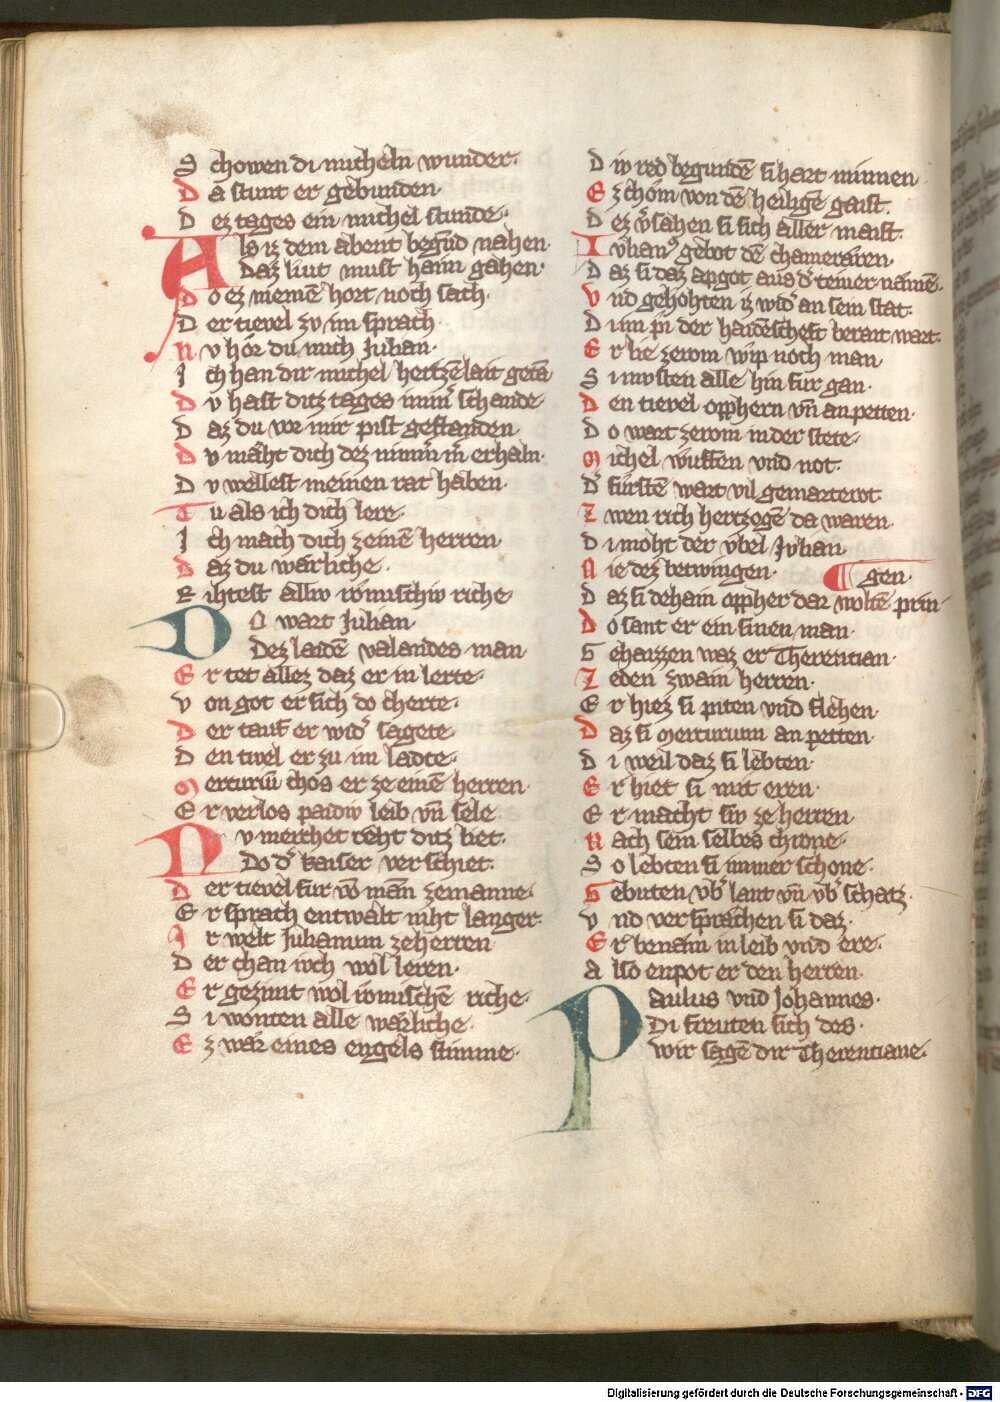 S chowen di micheln wunder·
D a stunt er gebunden·
D ez tages ein michel stunde·
Als iz dem abent begūd nahen·
Daz liut must haim gahen·
D o ez niemē hort noch sach·
D er tievel zv im sprach·
N v hór du mich Julian·
J ch han dir michel hertzēlait getā
D v hast ditz tages immͬ schande·
D az du vor mir pist gestanden·
D v maht dich dez nimmͬ mͬ erhaln·
D v wellest meinen rat haben·
T u als ich dich lere·
J ch mach dich zeinē herren·
D az du wærliche·
R ihtest alliv romischiv riche·
DO wart Julian·
Dez laidē valandes man·
E r tet allez daz er in lerte·
V on got er sich do cherte·
D er tauf er widͬ sagete·
D en tivel er zu im ladte·
M ercuriū chos er ze einē herren·
E r verlos paidiv leib vn̄ sele·
Nv merchet reht ditz liet·
Do dͬ kaiser verschiet·
D er tievel fur vō mān zemanne·
E r sprach entwalt niht langer·
J r welt Julianum zeherren·
D er chan ivch wol leren·
E r gezimt wol romischē riche·
S i wonten alle wærliche·
E z wær eines engels stimme·
D iv red begundē si hart minnen·
E z chom von dē heiligē gaist·
D ez vͬsahen si sich aller maist·
I vlianꝰ gebot dē chameræren·
D az si daz apgot aus dͬ teiuer næmē·
V nd gehohten iz widͬ an sein stat·
D im pi der haidēscheft berait wart·
E r lie zerom wip noch man·
S i mvsten alle hin fur gan·
D en tievel opphern vn̄ an petten·
D o wart zerom in der stete·
M ichel wuffen vnd not·
Dͬ furstē wart vil gemarterot·
Z wen rich hertzogē da waren·
D i moht der vbel Jvlian·
N ie dez betwingen· ¶ gen·
D az si dehain oppher dar woltē prin
D o sant er ein sinen man·
G ehaizzen waz er Therentian·
Z eden zwain herren·
E r hiez si piten vnd flehen·
D az si Mercurium an petten·
D i weil daz si lebten·
E r hiet si mit eren·
E r macht siv ze herren·
N ach sein selbes chrone·
S o lebten si immer schone·
G ebuten vbͬ lant vn̄ vbͬ schatz·
V nd versprachen si daz·
E r benæm in leib vnd ere·
A lso enpot er den herren·
Paulus vnd Johannes·
Di freuten sich des·
wir sagē dir Therentiane·
Digitalisierung gefördert durch die Deutsche Forschungsgemeinschaft - DFG